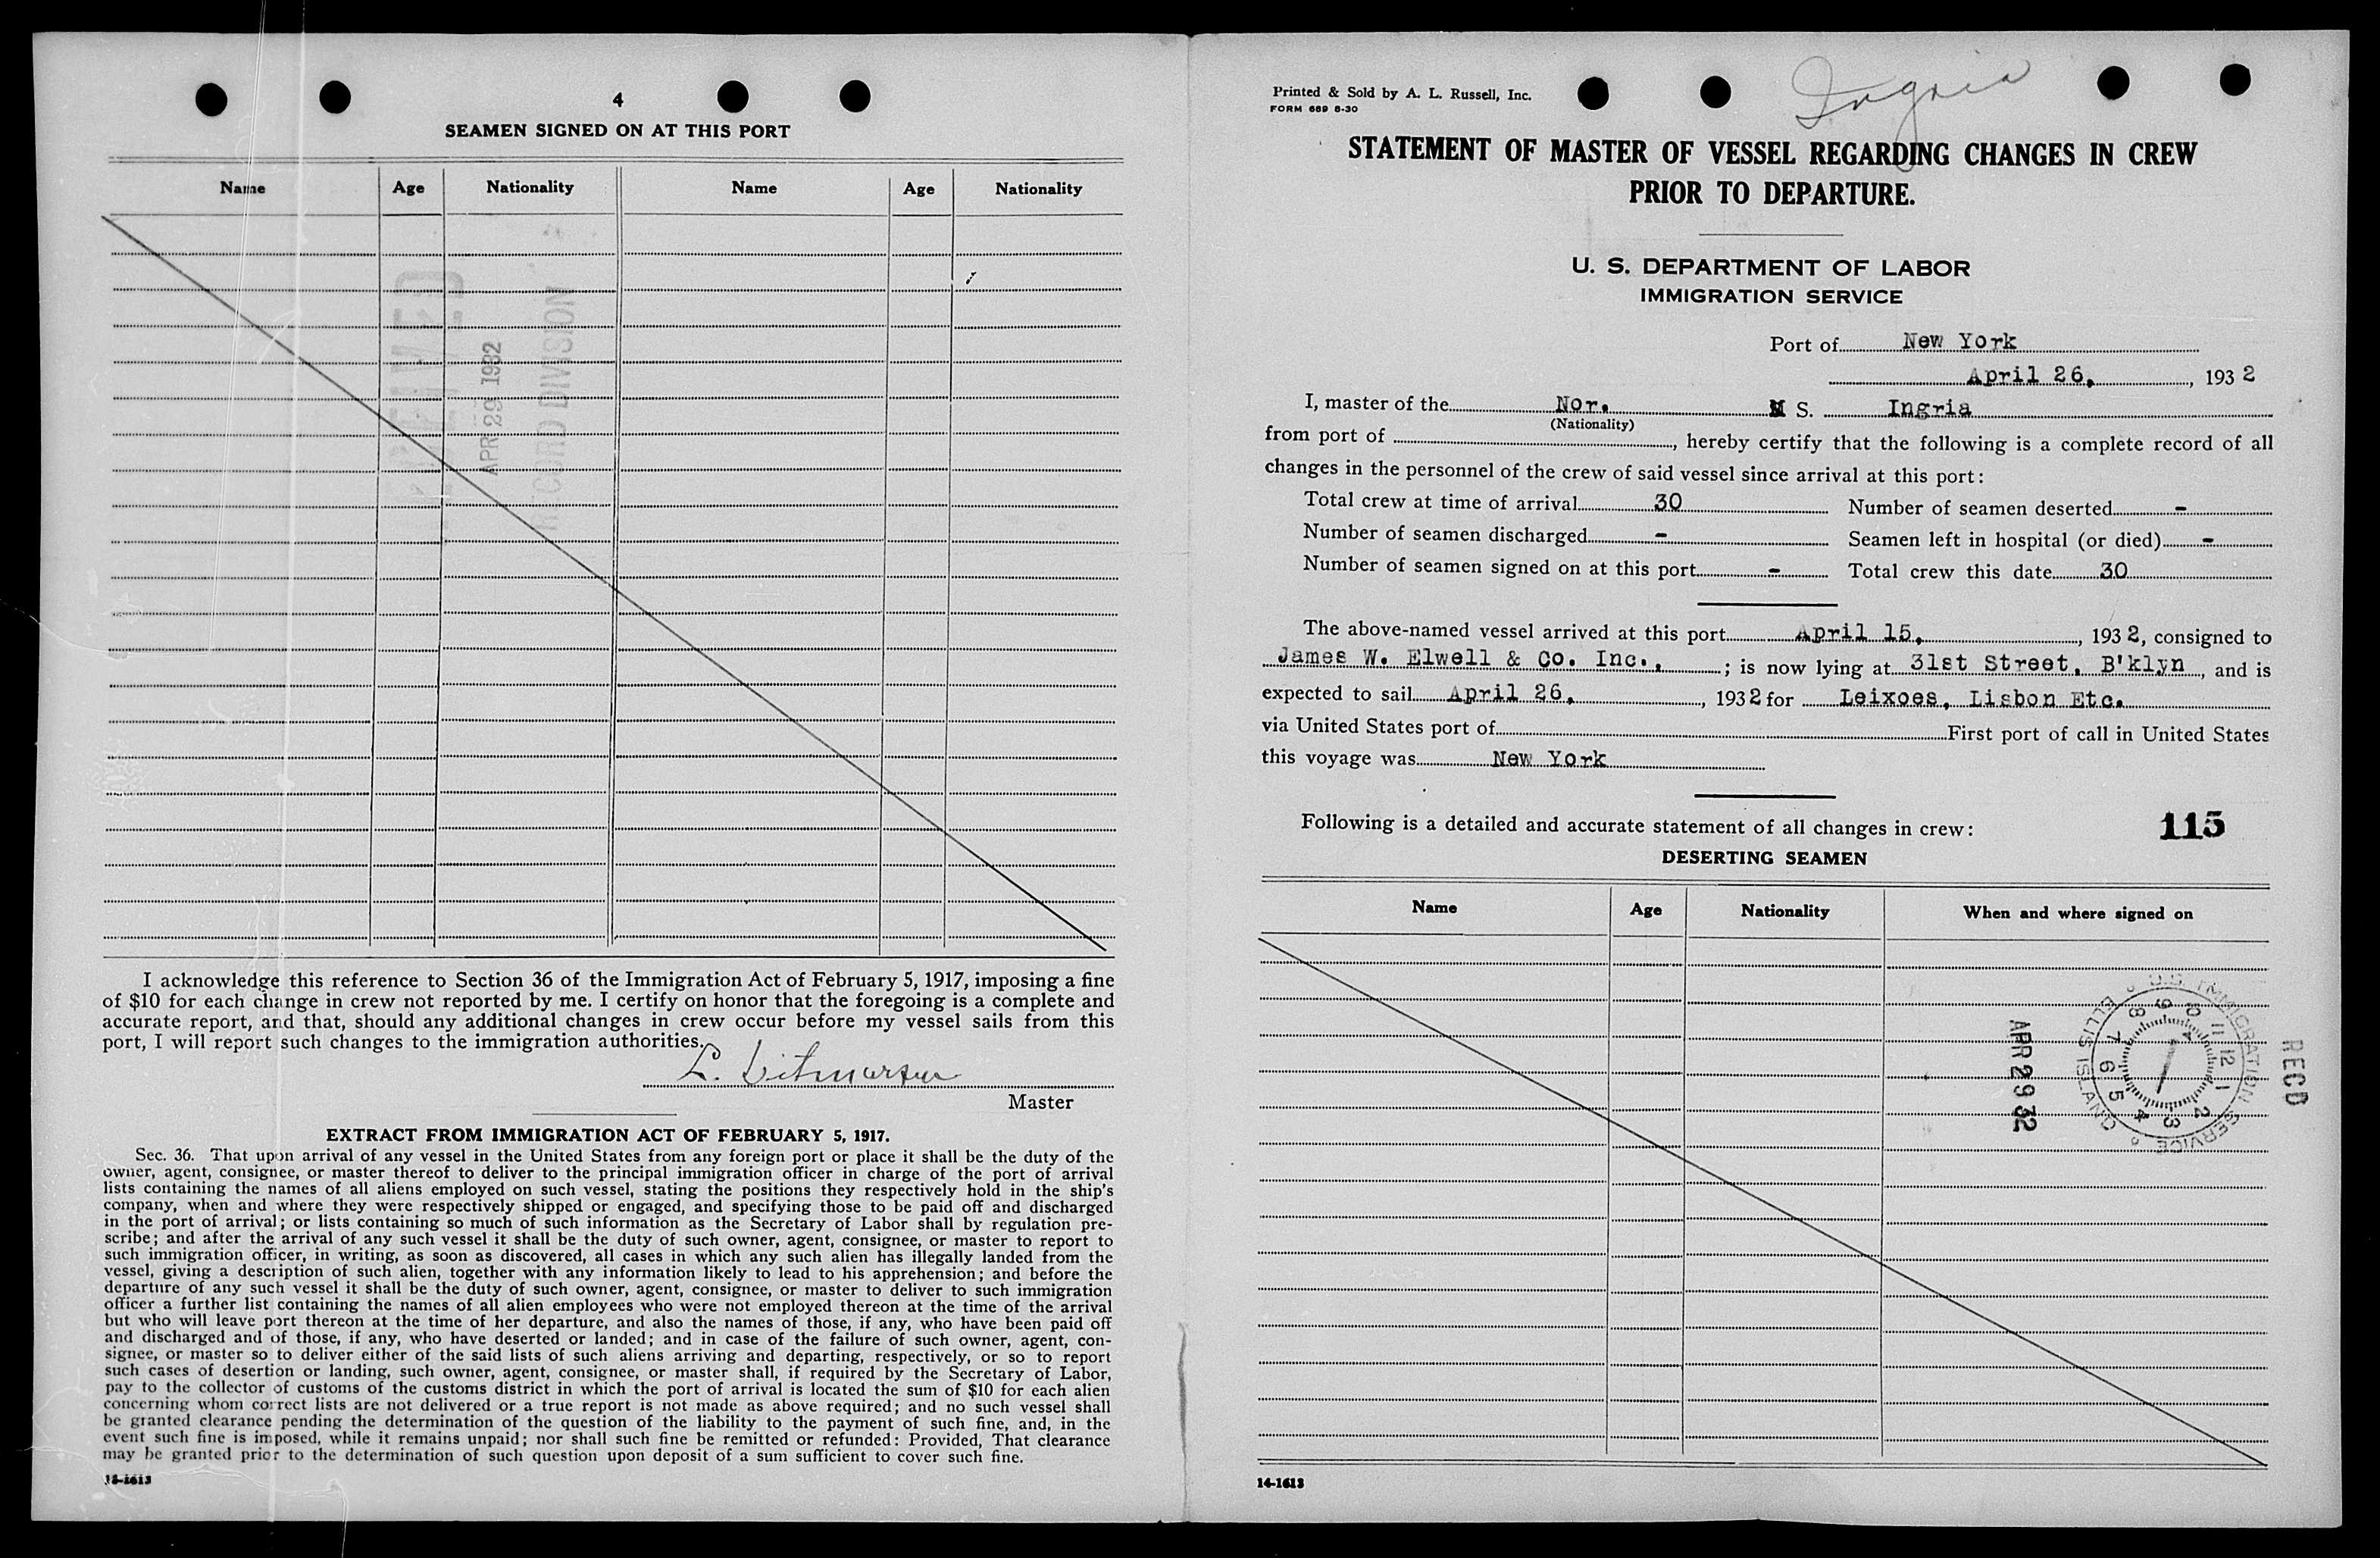 4
SEAMEN SIGNED ON AT THIS PORT
Name Age Nationality Name Age Nationality
APR 29 1932
RECORD DIVISION
I acknowledge this reference to Section 36 of the Immigration Act of February 5, 1917, imposing a fine
of $10 for each change in crew not reported by me. I certify on honor that the foregoing is a complete and
accurate report, and that, should any additional changes in crew occur before my vessel sails from this
port, I will report such changes to the immigration authorities.
L.
Master
EXTRACT FROM IMMIGRATION ACT OF FEBRUARY 5, 1917.
Sec. 36. That upon arrival of any vessel in the United States from any foreign port or place it shall be the duty of the
owner, agent, consignee, or master thereof to deliver to the principal immigration officer in charge of the port of arrival
lists containing the names of all aliens employed on such vessel, stating the positions they respectively hold in the ship's
company, when and where they were respectively shipped or engaged, and specifying those to be paid off and discharged
in the port of arrival; or lists containing so much of such information as the Secretary of Labor shall by regulation pre-
scribe; and after the arrival of any such vessel it shall be the duty of such owner, agent, consignee, or master to report to
such immigration officer, in writing, as soon as discovered, all cases in which any such alien has illegally landed from the
vessel, giving a description of such alien, together with any information likely to lead to his apprehension; and before the
departure of any such vessel it shall be the duty of such owner, agent, consignee, or master to deliver to such immigration
officer a further list containing the names of all alien employees who were not employed thereon at the time of the arrival
but who will leave port thereon at the time of her departure, and also the names of those, if any, who have been paid off
and discharged and of those, if any, who have deserted or landed; and in case of the failure of such owner, agent, con-
signee, or master so to deliver either of the said lists of such aliens arriving and departing, respectively, or so to report
such cases of desertion or landing, such owner, agent, consignee, or master shall, if required by the Secretary of Labor,
pay to the collector of customs of the customs district in which the port of arrival is located the sum of $10 for each alien
concerning whom correct lists are not delivered or a true report is not made as above required; and no such vessel shall
be granted clearance pending the determination of the question of the liability to the payment of such fine, and, in the
event such fine is imposed, while it remains unpaid; nor shall such fine be remitted or refunded: Provided, That clearance
may be granted prior to the determination of such question upon deposit of a sum sufficient to cover such fine.
14-1613
Printed & Sold by A. L. Russell, Inc.
FORM 689 8-30
Ingria
STATEMENT OF MASTER OF VESSEL REGARDING CHANGES IN CREW
PRIOR TO DEPARTURE.
U. S. DEPARTMENT OF LABOR
IMMIGRATION SERVICE
Port of New York
April 26, 1932
I, master of the Nor. M S. Ingria
(Nationality)
from port of , hereby certify that the following is a complete record of all
changes in the personnel of the crew of said vessel since arrival at this port:
Total crew at time of arrival 30 Number of seamen deserted -
Number of seamen discharged - Seamen left in hospital (or died) -
Number of seamen signed on at this port - Total crew this date 30
The above-named vessel arrived at this port April 15, , 1932, consigned to
James W. Elwell & Co. Inc., ; is now lying at 31st Street, B'klyn, and is
expected to sail April 26, , 1932 for Leixoes, Lisbon Etc.
via United States port of First port of call in United States
this voyage was New York
Following is a detailed and accurate statement of all changes in crew:
115
DESERTING SEAMEN
Name Age Nationality When and where signed on
APR 29 32
U.S. IMMIGRATION SERVICE
ELLIS ISLAND
1 2 3 4 5 6 7 8 9 10 11 12
RECD
14-1613